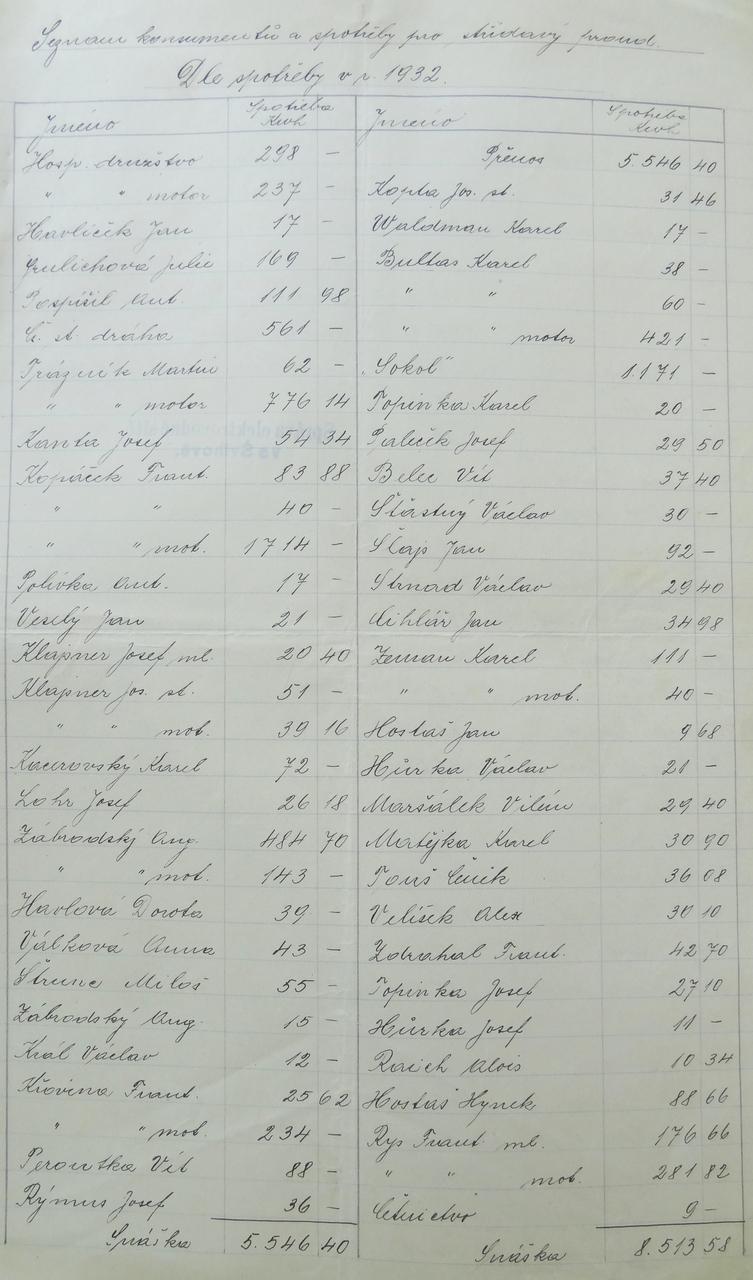 Seznam konsumentů a spotřeby pro střídavý proud.
Dle spotřeby v r. 1932.
Jméno Spotřeba Kwh
Hosp. družstvo 298 —
" " motor 237 —
Havlíček Jan 17 —
Grulichová Julie 169 —
Pospíšil Ant. 111 98
Č. st. dráha 561 —
Trázník Martin 62 —
" " motor 776 14
Kanta Josef 54 34
Kopáček Frant. 83 88
" " 40 —
" " mot. 1714 —
Polívka Ant. 17 —
Veselý Jan 21 —
Klapner Josef ml. 20 40
Klapner Jos. st. 51 —
" " mot. 39 16
Kacerovský Karel 72 —
Lohr Josef 26 18
Zábrodský Aug. 484 70
" " mot. 143 —
Havlová Dorota 39 —
Válková Anna 43 —
Štrunc Miloš 55 —
Zábrodský Aug. 15 —
Král Václav 12 —
Křovina Frant. 25 62
" " mot. 234 —
Peroutka Vít 88 —
Rýmus Josef 36 —
Snáška 5.546 40
Jméno Spotřeba Kwh
Přenos 5.546 40
Kopta Jos. st. 31 46
Waldman Karel 17 —
Bultas Karel 38 —
" " 60 —
" " motor 421 —
„Sokol" 1.171 —
Topinka Karel 20 —
Paliček Josef 29 50
Belec Vít 37 40
Šťastný Václav 30 —
Šlajs Jan 92 —
Strnad Václav 29 40
Cihlář Jan 34 98
Zeman Karel 111 —
" " mot. 40 —
Hostaš Jan 9 68
Hůrka Václav 21 —
Maršálek Vilém 29 40
Matějka Karel 30 90
Touš Čeněk 36 08
Velíšek Alex 30 10
Zdrahal Frant. 42 70
Topinka Josef 27 10
Hůrka Josef 11 —
Raich Alois 10 34
Hostaš Hynek 88 66
Rys Frant. ml. 176 66
" " mot. 281 82
Četnictvo 9 —
Snáška 8.513 58